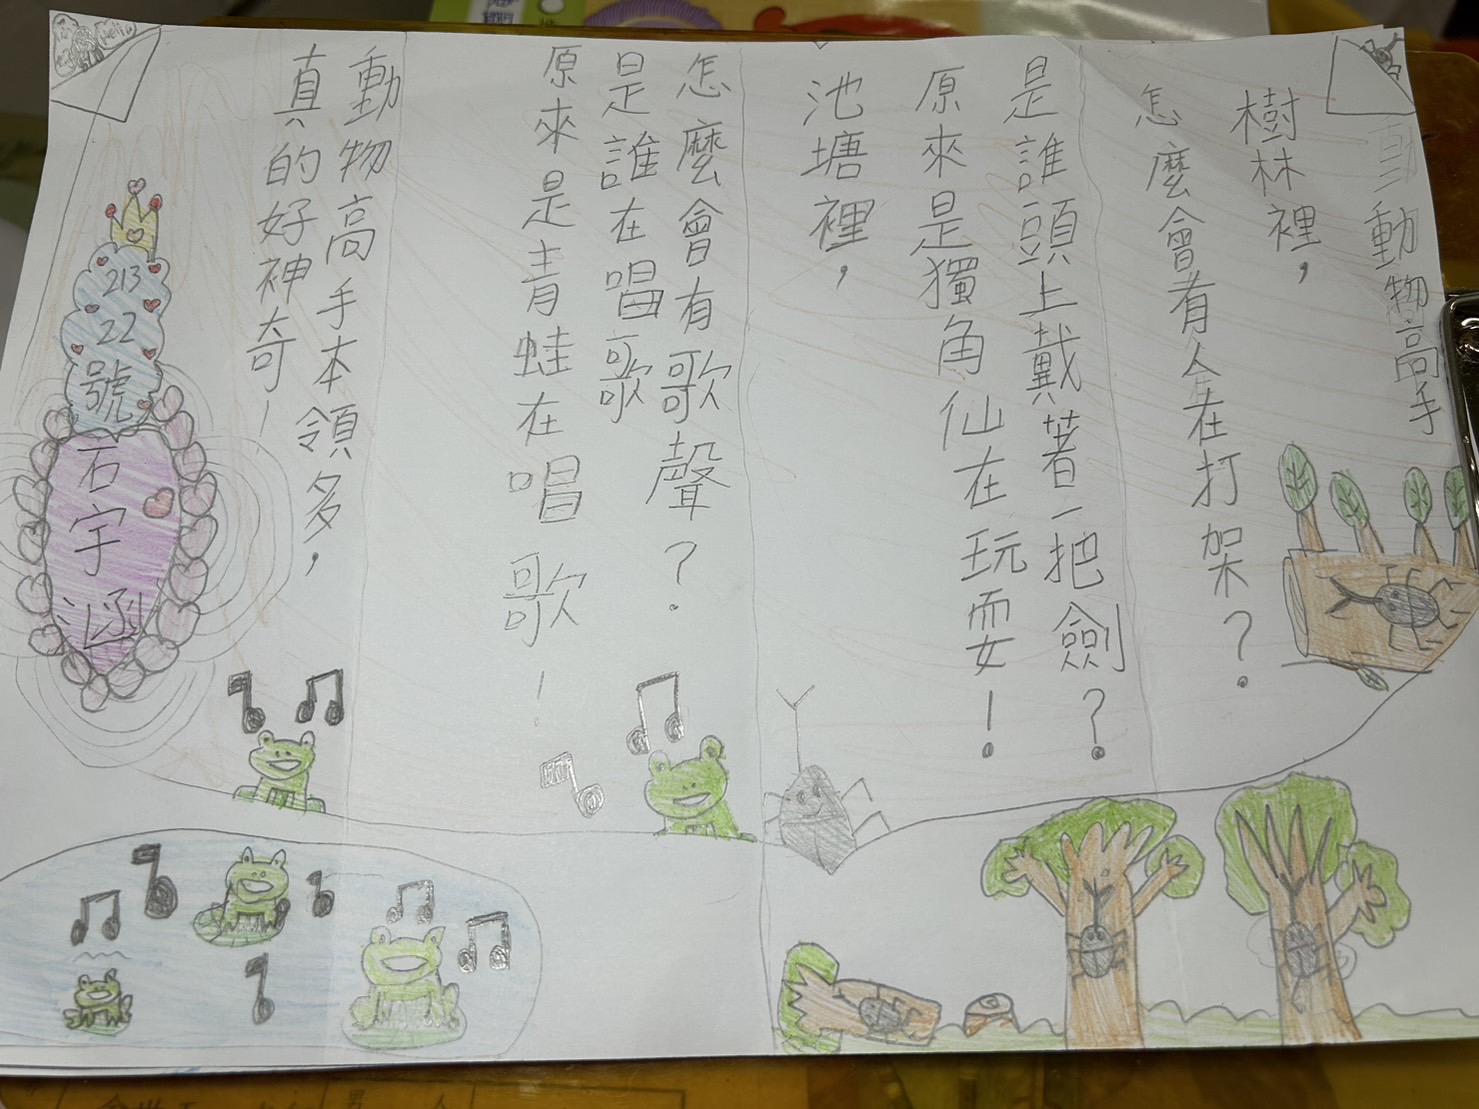 動物高手
樹林裡，
怎麼會有人在打架？
是誰頭上戴著一把劍？
原來是獨角仙在玩耍！
池塘裡，
怎麼會有歌聲？
是誰在唱歌
原來是青蛙在唱歌！
動物高手本領多，
真的好神奇！
213
22
號
石宇涵